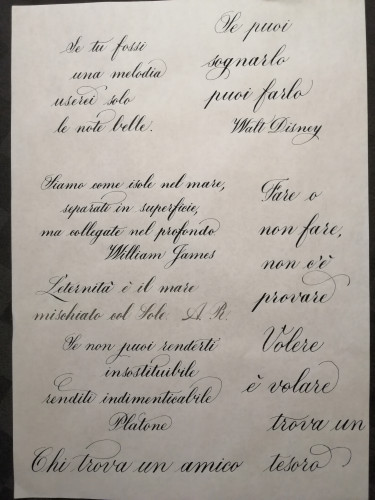 Se tu fossi
una melodia
userei solo
le note belle.
Se puoi
sognarlo
puoi farlo
Walt Disney
Siamo come isole nel mare,
separate in superficie,
ma collegate nel profondo
William James
Fare o
non fare,
non c'è
provare
L'eternità è il mare
mischiato col Sole A.R.
Se non puoi renderti
insostituibile
renditi indimenticabile
Platone
Volere
è volare
Chi trova un amico
trova un
tesoro